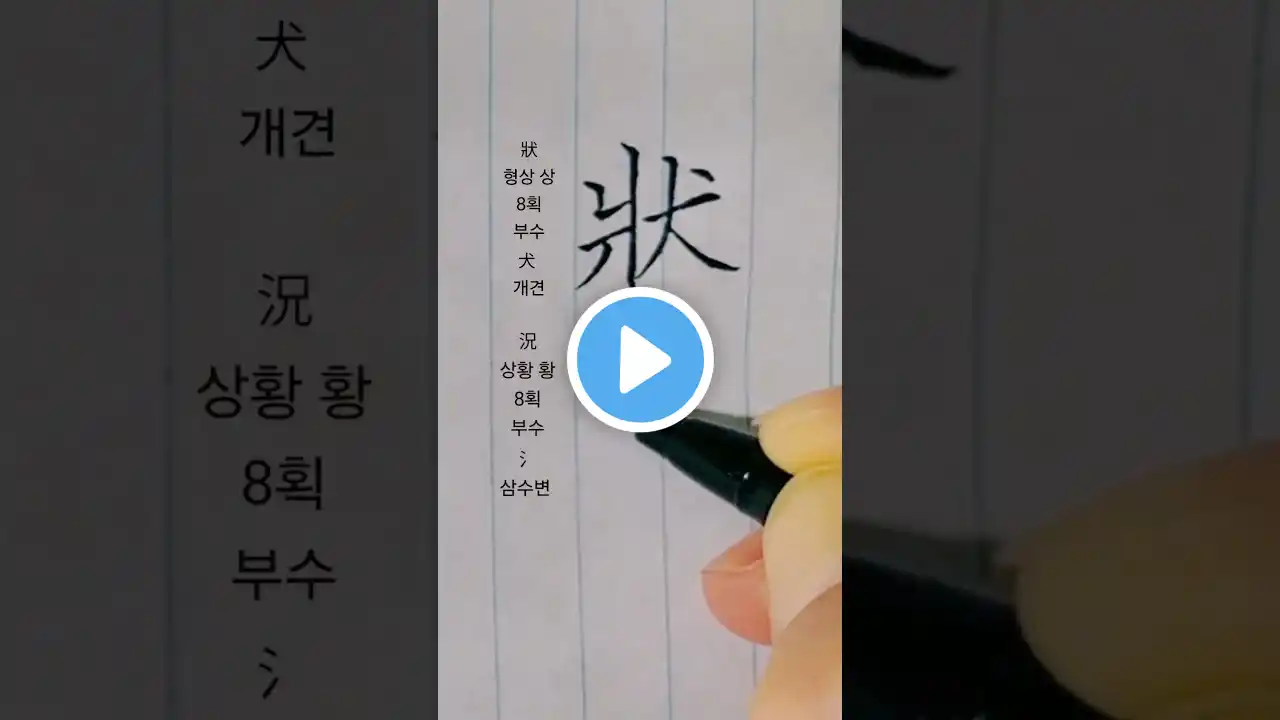 犬
개견
況
상황 황
8획
부수
氵
狀
형상 상
8획
부수
犬
개견
況
상황 황
8획
부수
氵
삼수변
狀